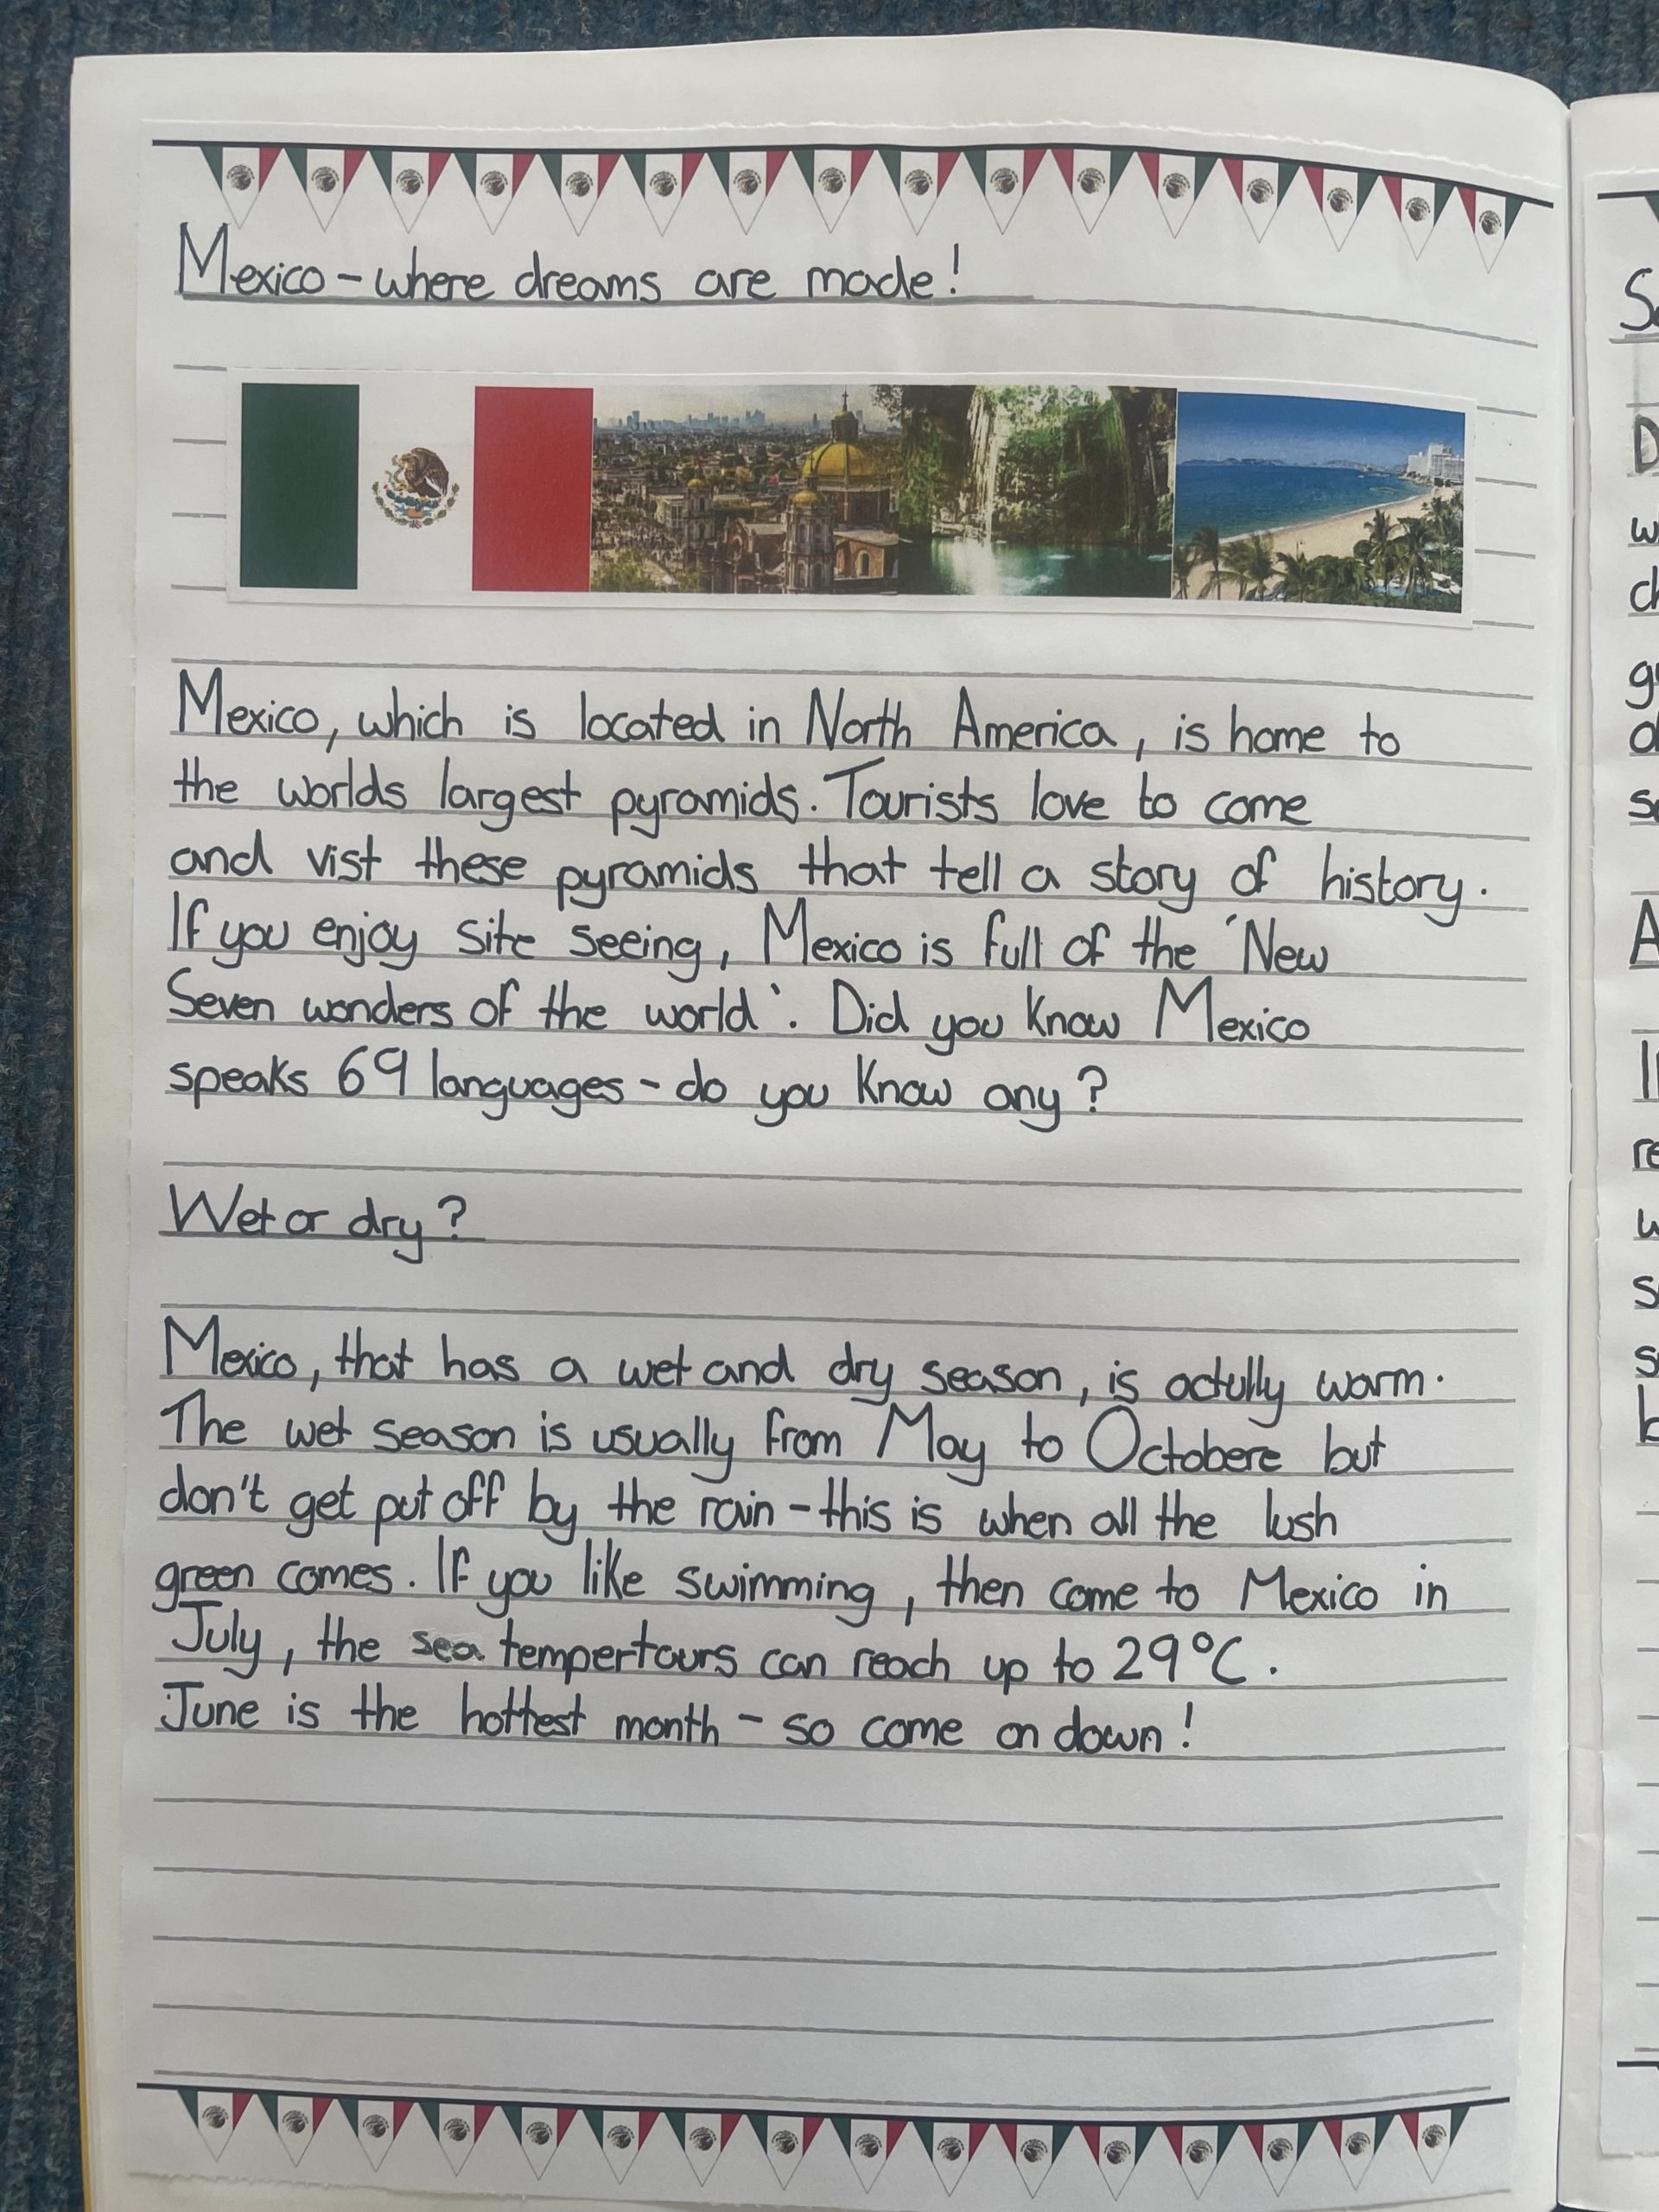 Mexico - where dreams are made!
Mexico, which is located in North America, is home to
the worlds largest pyramids. Tourists love to come
and vist these pyramids that tell a story of history.
If you enjoy site seeing, Mexico is full of the 'New
Seven wonders of the world'. Did you know Mexico
speaks 69 languages - do you know any?
Wet or dry?
Mexico, that has a wet and dry season, is actully warm.
The wet season is usually from May to Octobere but
don't get put off by the rain - this is when all the lush
green comes. If you like swimming, then come to Mexico in
July, the sea tempertours can reach up to 29°C.
June is the hottest month - so come on down!